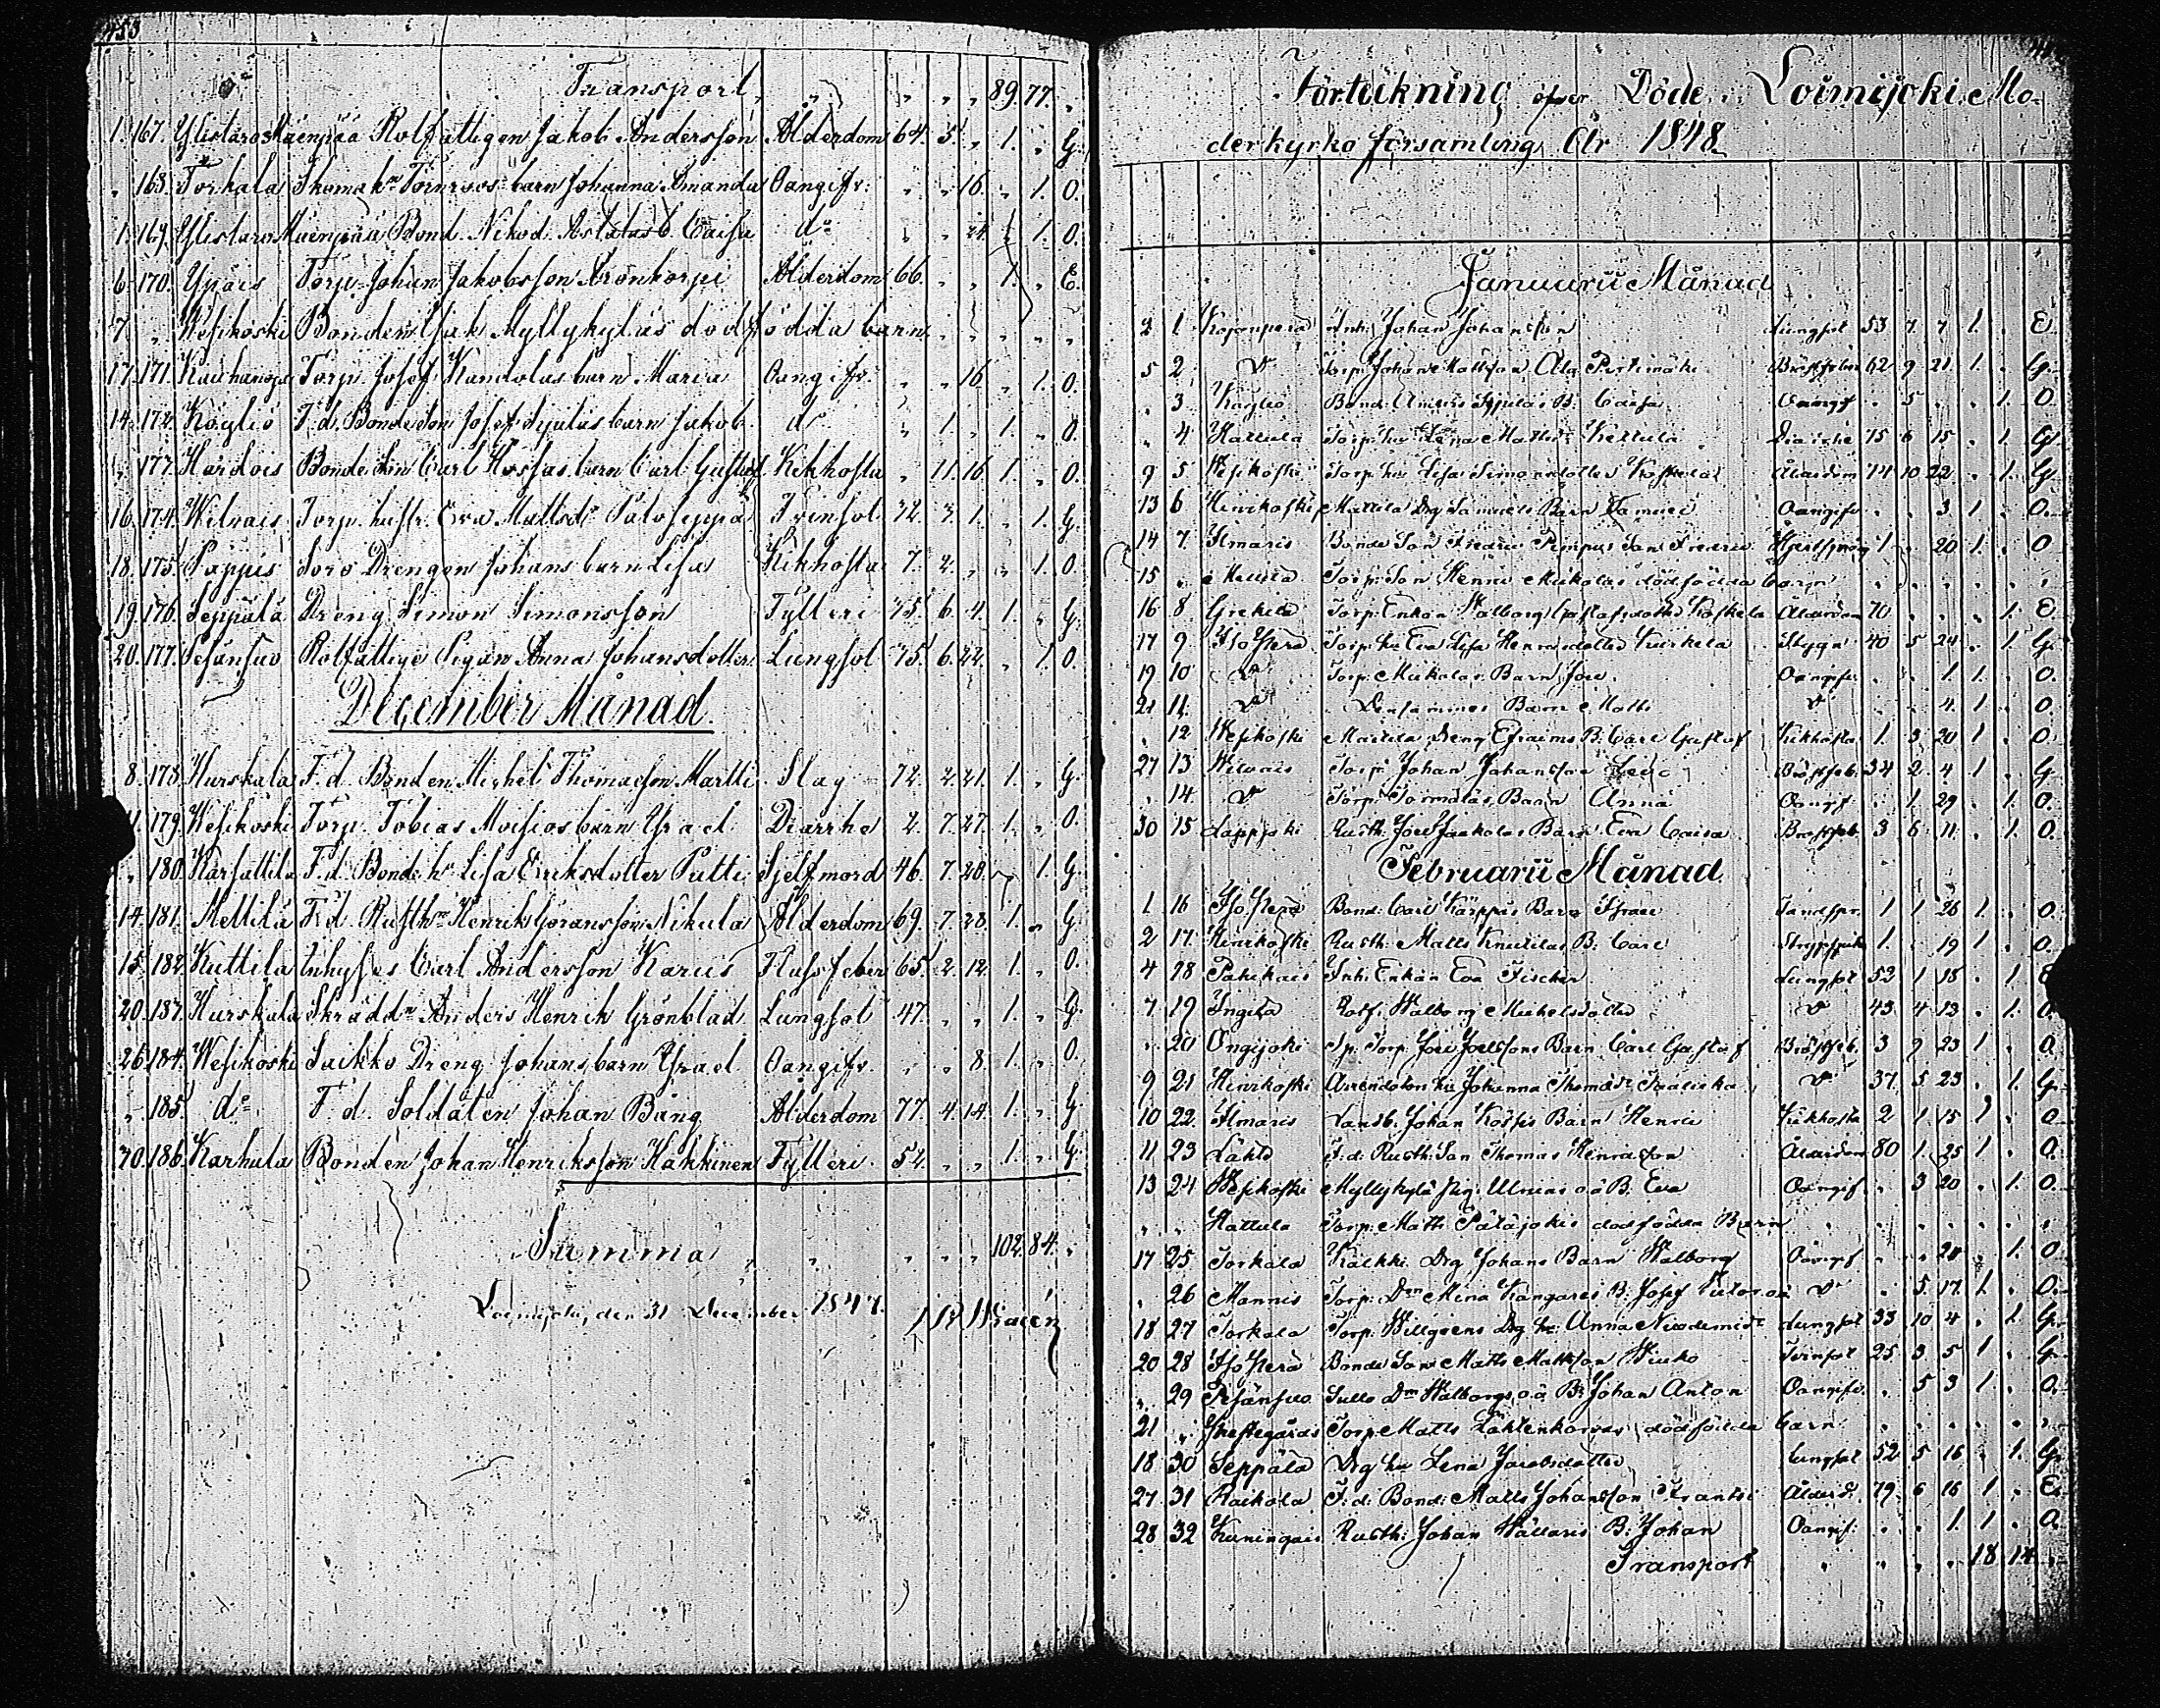 453
Transport " " " " 89. 77. "
1. 167. Ylistaro Mäenpää Rotfattigen Jakob Andersson Ålderdom 64. 5. " 1. " G.
" 168. Torkala Skomakrn Törnroos barn Johanna Amanda Oangifv. " " 16. " 1. O.
1. 169. Ylistaro Mäenpää Bond. Nikod. b. Caisa do " " 24. " 1. O.
6. 170. Ypäis Torp. Johan Jakobsson Ålderdom 66. " " 1. " E.
7. " Wesikoski Bonden Isak Myllykyläs dödfödda barn " " " " " "
17. 171. Torp. Josef barn Maria Oangifv. " " 16. " 1. O.
14. 172. Köyliö F. d. Bondeson Josef barn Jakob do " 1. " 1. " O.
" 173. Hardois Bonde Son Carl barn Carl Gustaf Kikhosta " 11. 16. 1. " O.
16. 174. Wilvais Torp. hustr. Eva Mattsdr Paloseppä 72. 3. 1. " 1. G.
18. 175. Pappis Drengen Johans barn Lisa Kikhosta 7. 2. " " 1. O.
19. 176. Seppälä Dreng Simon Simonsson Fylleri 45. 6. 4. 1. " G.
20. 177. Pesänsuo Rotfattige Pigan Anna Johansdotter Lungsot 75. 6. 22. " 1. O.
December Månad.
8. 178. Hurskala F. d. Bonden Michel Thomasson Martti Slag 72. 2. 21. 1. " G.
11. 179. Wesikoski Torp. Tobias Moisios barn Israel Diarrhe 2. 7. 27. 1. " O.
" 180. Karsattila F. d. Bond. hu Lisa Eriksdotter Putti Sjelfmord 46. 7. 20. " 1. G.
14. 181. Mellilä F. d. Rusthn Henrik Göransson Nikula Ålderdom 69. 7. 28. 1. " G.
15. 182. Kuttila Inhyses Carl Andersson Karus Flussfeber 65. 2. 12. 1. " O.
20. 183. Hurskala Skräddn Anders Henrik Grönblad Lungsot 47. " " 1. " G.
26. 184. Wesikoski Saikko Dreng Johans barn Israel Oangifv. " " 8. 1. " O.
" 185. do F. d. Soldaten Johan Bång Ålderdom 77. 4. 14. 1. " G.
30. 186. Karhula Bonden Johan Henriksson Häkkinen Fylleri 52. " " 1. " G.
Summa " " " " " 102. 84. "
Loimijoki, den 31 December 1847.
Förteckning öfver Döde i Loimijoki Mo-
derkyrko församling År 1848
Januarii Månad
3 1 Kojonperä Inh. Johan Johansson Lungsot 53 7 7 1. " E.
5 2 Do Torp. Johan Mattsson Ala Pirtimäki Bröstfeber 62 9 21 1. " G.
" 3 Köyliö Bond. B. Caisa Oangif " 5 " " 1. O
" 4 Hattula Torp. hu Lena Mattsdr Kettula Diarrhé 75 6 15 " 1. G.
9 5 Wesikoski Torp. hu Lisa Simonsdotter Koskela Ålderdom 74 10 22 " 1. G
13 6 Hirvikoski Mattila Drg Samuels Barn Samuel Oangifv " " 3 1 " O.
14 7 Ilmaris Bonde Son Fredric Pimpus Son Fredric 1 " 20 1. " O
15 " Mellilä Torp. Son Henric Mikolas dödfödda barn " " " " " "
16 8 Grekilä Torp. Enkan Walborg Gustafsdotter Koskela Ålderdom 70 " " " 1. E
17 9 Isoperä Torp. hu Eva Lisa Henricsdotter Kurkela Stygn 40 5 24 " 1. G.
19 10 Do Torp. Mikolas Barn Joel Oangifv " " 1. 1. " O.
21 11 Do Densammes Barn Matts Do " " 4. 1 " O.
" 12 Wesikoski Mattila Dreng Efraims B. Carl Gustaf Kikhosta 1. 3 20 1 " O
27 13 Wilvais Torp. Johan Johansson Leino Bröstfeb. 34 2 4 1 " G
" 14 Do Torp. Tormälas Barn Anna Oangif. " 1. 29 " 1. O.
30 15 Lappijoki Rusth. Joel Jaakolas Barn Eva Caisa Bröstfeb. 3 6 11 " 1. O.
Februarii Månad
1 16 Isoperä Bond. Carl Kärppis Barn Israel Tandspr. 1 1 26 1 " O
2 17 Hirvikoski Rusth. Matts Knutilas B. Carl Strypsjuk 1. " 19 1 " O.
4 18 Inh. Enkan Eva Fischer Lungsot 52 1 18 " 1 E
7 19 Ingilä Rotf. Walborg Michelsdotter Do 43 4 13 " 1. O
" 20 Onkijoki Sp. Torp. Joel Joelssons Barn Carl Gustaf Bröstfeb. 3 9 23 1 " O
9 21 Hirvikoski Arrendators hu Johanna Thomasdr Do 37 5 23 " 1. G.
10 22 Ilmaris Landb. Johan Barn Henric Kikhosta 2 1 15 1 " O
11 23 Lähtö F. d. Rusth. Son Thomas Henricsson Ålderdom 80 1 25 1 " O.
13 24 Wesikoski Myllykylä Pig. Ulricas o.ä B. Eva Oangif. " 3 20 " 1. O.
" " Hattula Torp. Matts Pätäjokis dödfödda Barn " " " " " "
17 25 Torkala Kalkki Drg Johans Barn Walborg Oangif " " 24 " 1. O
" 26 Mannis Torp. Drn Mina Kangaris B. Josef Victor oä Do " 5 17 1. " O.
18 27 Torkala Torp. Willgrens Drg hu Anna Nicodemidr Lungsot 33 10 4 " 1. G.
20 28 Isoperä Bonde Son Matts Mattsson 25 3 5 1 " G.
" 29 Pesänsuo Sullo Drn Walborgs o.ä B. Johan Anton Oangifv " 5 3 1 " O.
21 " Prestegårds Torp. Matts Lähteenkorvas dödfödda barn " " " " " "
18 30 Seppälä Drg hu Lena Jacobsdotter Lungsot 52 5 16 " 1. G.
27 31 Raikola F. d. Bond. Matts Johansson Frantsi Ålderd. 79 6 16 1 " E.
28 32 Kuningais Rusth. Johan Wällaris B. Johan Oangif. " " 1. 1. " O
Transport " " " " 18 14 "